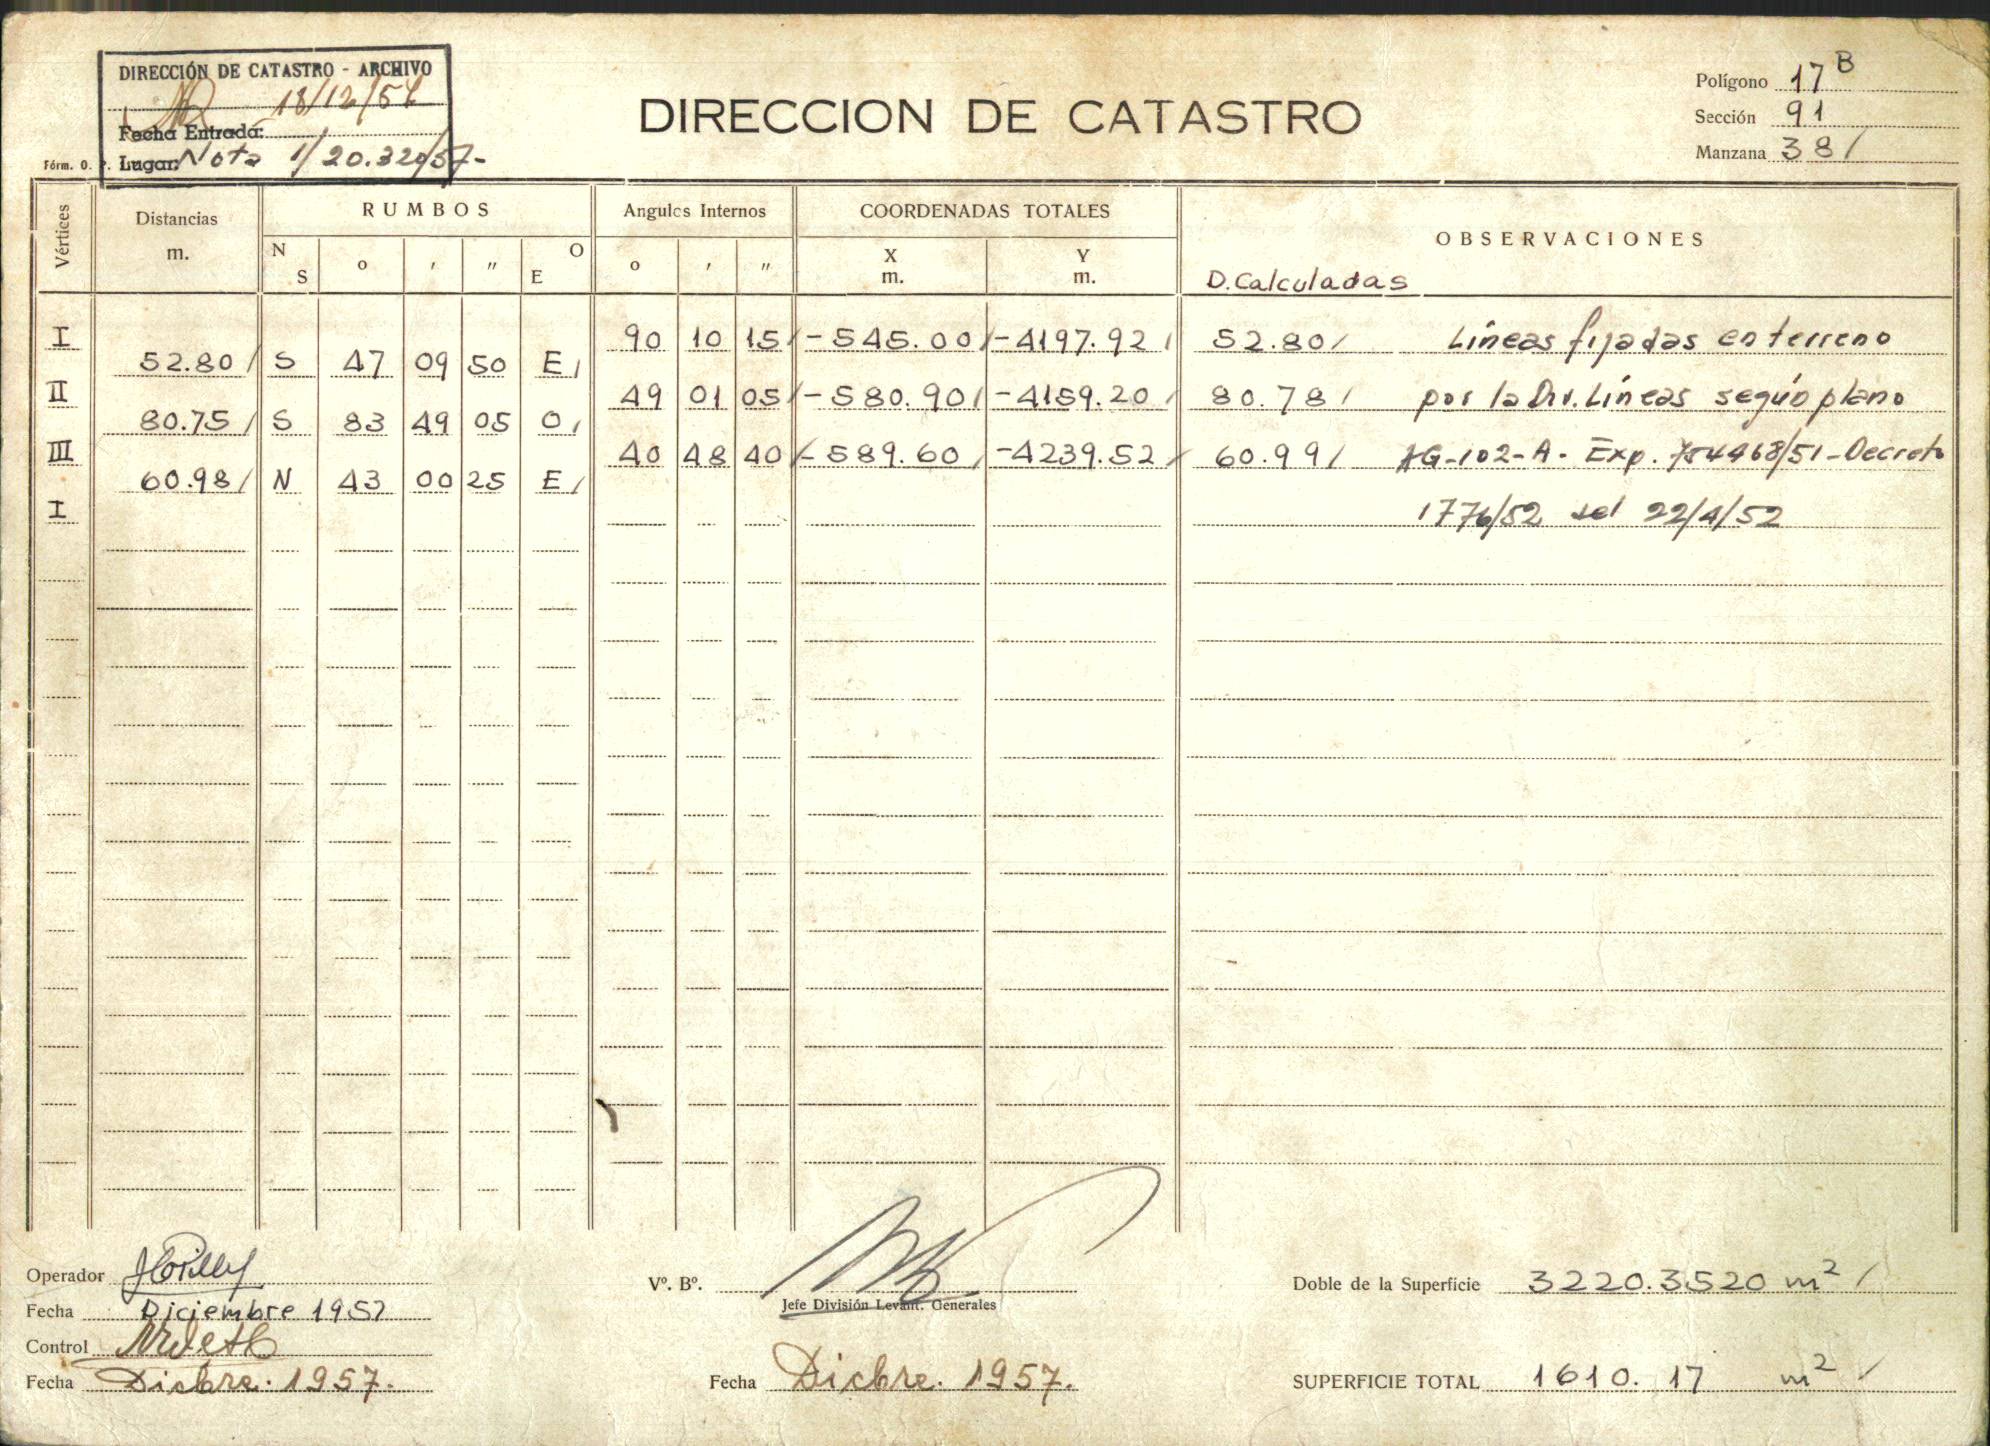 DIRECCIÓN DE CATASTRO - ARCHIVO
18/12/57
Fecha Entrada:
Lugar: Nota 1/20.320/57-
Fórm. O. P.
DIRECCION DE CATASTRO
Polígono 17 B
Sección 91
Manzana 38/
Vértices
Distancias
m.
RUMBOS
N
S
o
'
"
O
E
Angulos Internos
o
'
"
COORDENADAS TOTALES
X
m.
Y
m.
OBSERVACIONES
D. Calculadas
I 90 10 15/ -545.00/ -4197.92/ 52.80/ Líneas fijadas en terreno
52.80/ S 47 09 50 E/
II 49 01 05/ -580.90/ -4159.20/ 80.78/ por la Div. Líneas según plano
80.75/ S 83 49 05 O/
III 40 48 40/ -589.60/ -4239.52/ 60.99/ AG-102-A- Exp. 754468/51-Decreto
60.98/ N 43 00 25 E/
I 1776/52 del 22/4/52
Operador
Fecha Diciembre 1957
Control
Fecha Dicbre. 1957.
Vº. Bº.
Jefe División Levant. Generales
Fecha Dicbre. 1957.
Doble de la Superficie 3220.3520 m² /
SUPERFICIE TOTAL 1610.17 m² /